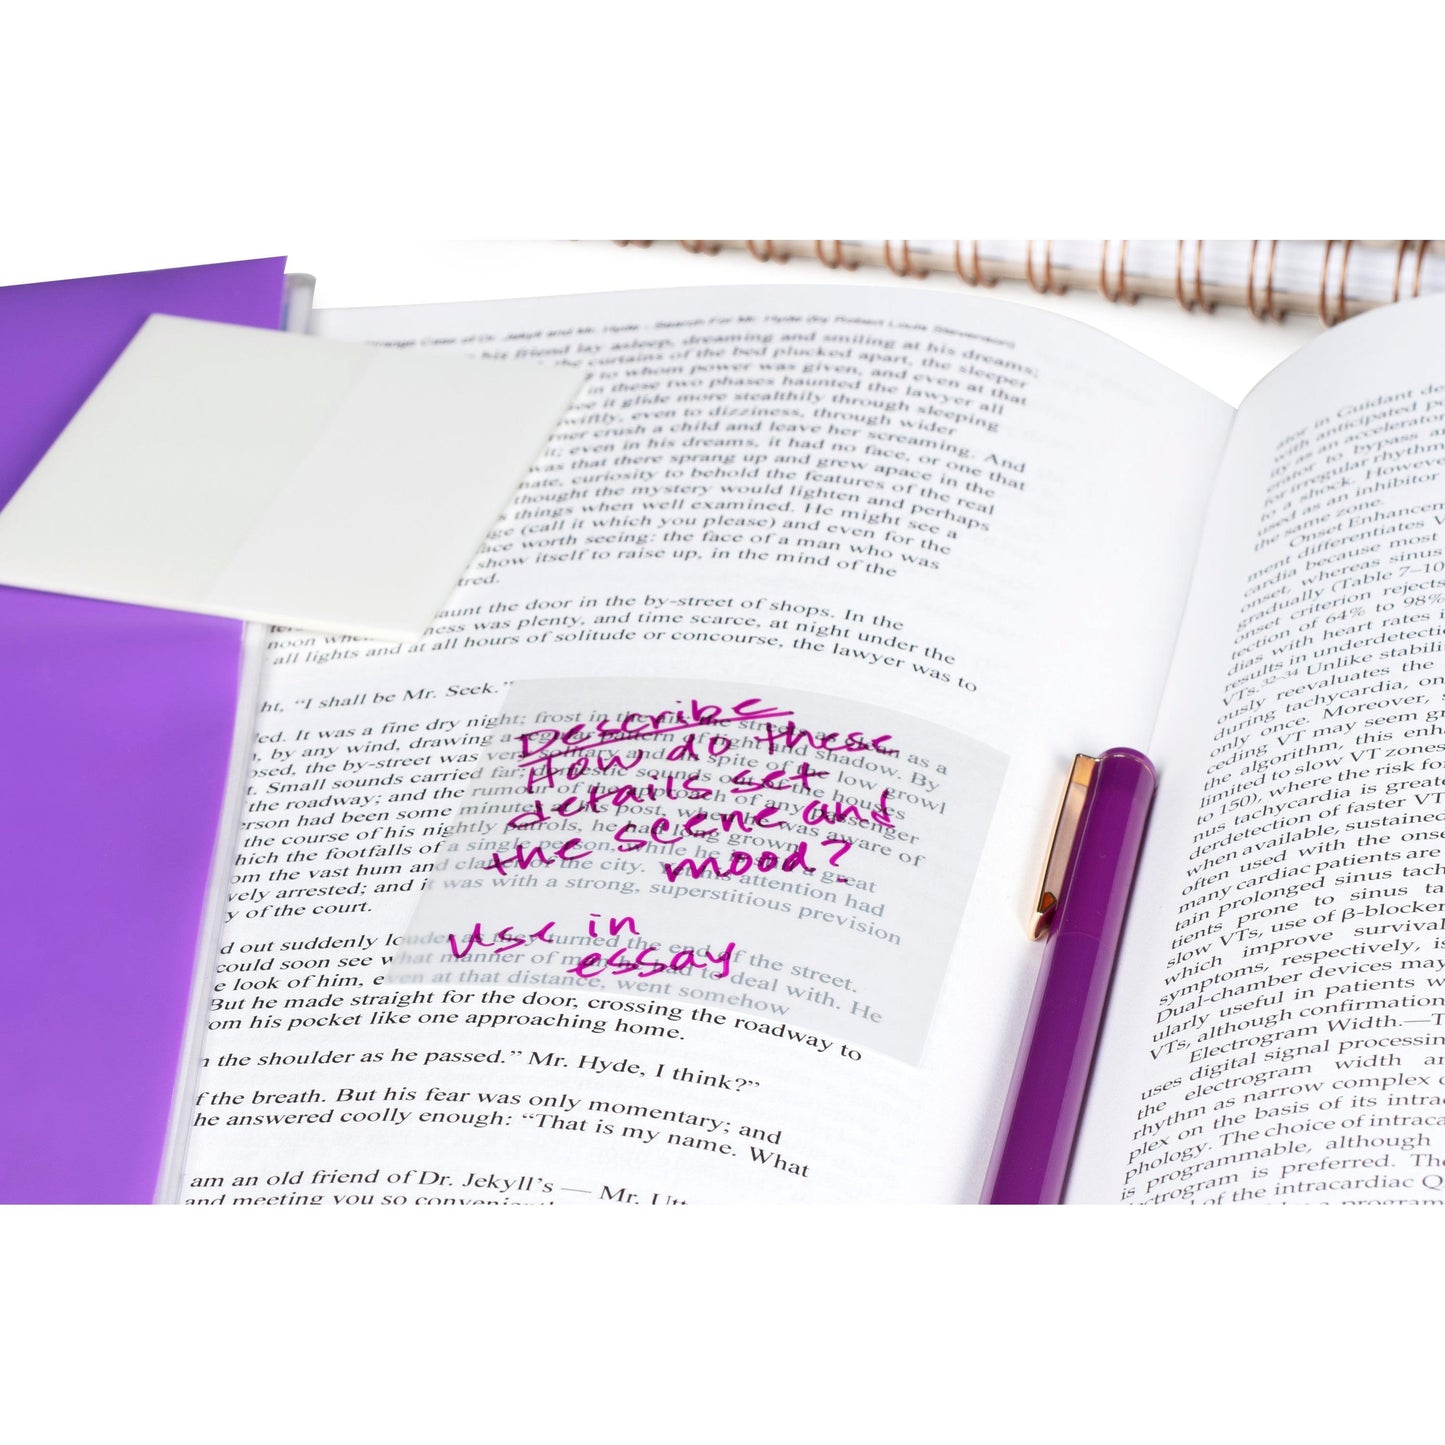 Strange Case of Dr. Jekyll and Mr. Hyde - Search For Mr. Hyde (by Robert Louis Stevenson)
his friend lay asleep, dreaming and smiling at his dreams;
the curtains of the bed plucked apart, the sleeper
to whom power was given, and even at that
in these two phases haunted the lawyer all
it glide more stealthily through sleeping
swiftly, even to dizziness, through wider
crush a child and leave her screaming. And
it; even in his dreams, it had no face, or one that
was that there sprang up and grew apace in the
curiosity to behold the features of the real
thought the mystery would lighten and perhaps
things when well examined. He might see a
(call it which you please) and even for the
face worth seeing: the face of a man who was
show itself to raise up, in the mind of the
haunt the door in the by-street of shops. In the
noon when was plenty, and time scarce, at night under the
all lights and at all hours of solitude or concourse, the lawyer was to
"I shall be Mr. Seek."
It was a fine dry night; frost in the air; the streets as clean as a
by any wind, drawing a regular pattern of light and shadow. By
the by-street was very solitary and, in spite of the low growl
Small sounds carried far; domestic sounds out of the houses
the roadway; and the rumour of the approach of any passenger
had been some minutes at his post, when he was aware of
the course of his nightly patrols, he had long grown
the footfalls of a single person, while he is still a great
the vast hum and clatter of the city. Yet his attention had
arrested; and it was with a strong, superstitious prevision
of the court.
out suddenly louder as they turned the end of the street.
could soon see what manner of man he had to deal with. He
look of him, even at that distance, went somehow
But he made straight for the door, crossing the roadway to
his pocket like one approaching home.
the shoulder as he passed." Mr. Hyde, I think?"
the breath. But his fear was only momentary; and
he answered coolly enough: "That is my name. What
am an old friend of Dr. Jekyll's — Mr.
and meeting you so
Describe
How do these
details set
the scene and
mood?
use in
essay
in Guidant
with anticipated
as an accelerator
to bypass
for irregular rhythm
a shock. However
used as an inhibitor
the same zone.
Onset
ment differentiates
cardia because most
onset, whereas sinus
gradually (Table 7–10
onset criterion rejects
tection of 64% to 98%
dias with heart rates
results in underdetection
VTs.32–34 Unlike
ously reevaluates the
during tachycardia,
only once. Moreover,
ceding VT may seem
the algorithm, this
limited to slow VT zones
to 150), where the risk for
nus tachycardia is
derdetection of faster VT
when available, sustained
often used with the
many cardiac patients are
tain prolonged sinus
tients prone to sinus
slow VTs, use of β-blocker
which improve
symptoms, respectively, is
Dual-chamber devices may
ularly useful in patients
VTs, although confirmation
Electrogram Width.—
uses digital signal processing
the electrogram width
rhythm as narrow complex
plex on the basis of its
phology. The choice of
is programmable, although
is preferred.
of the intracardiac